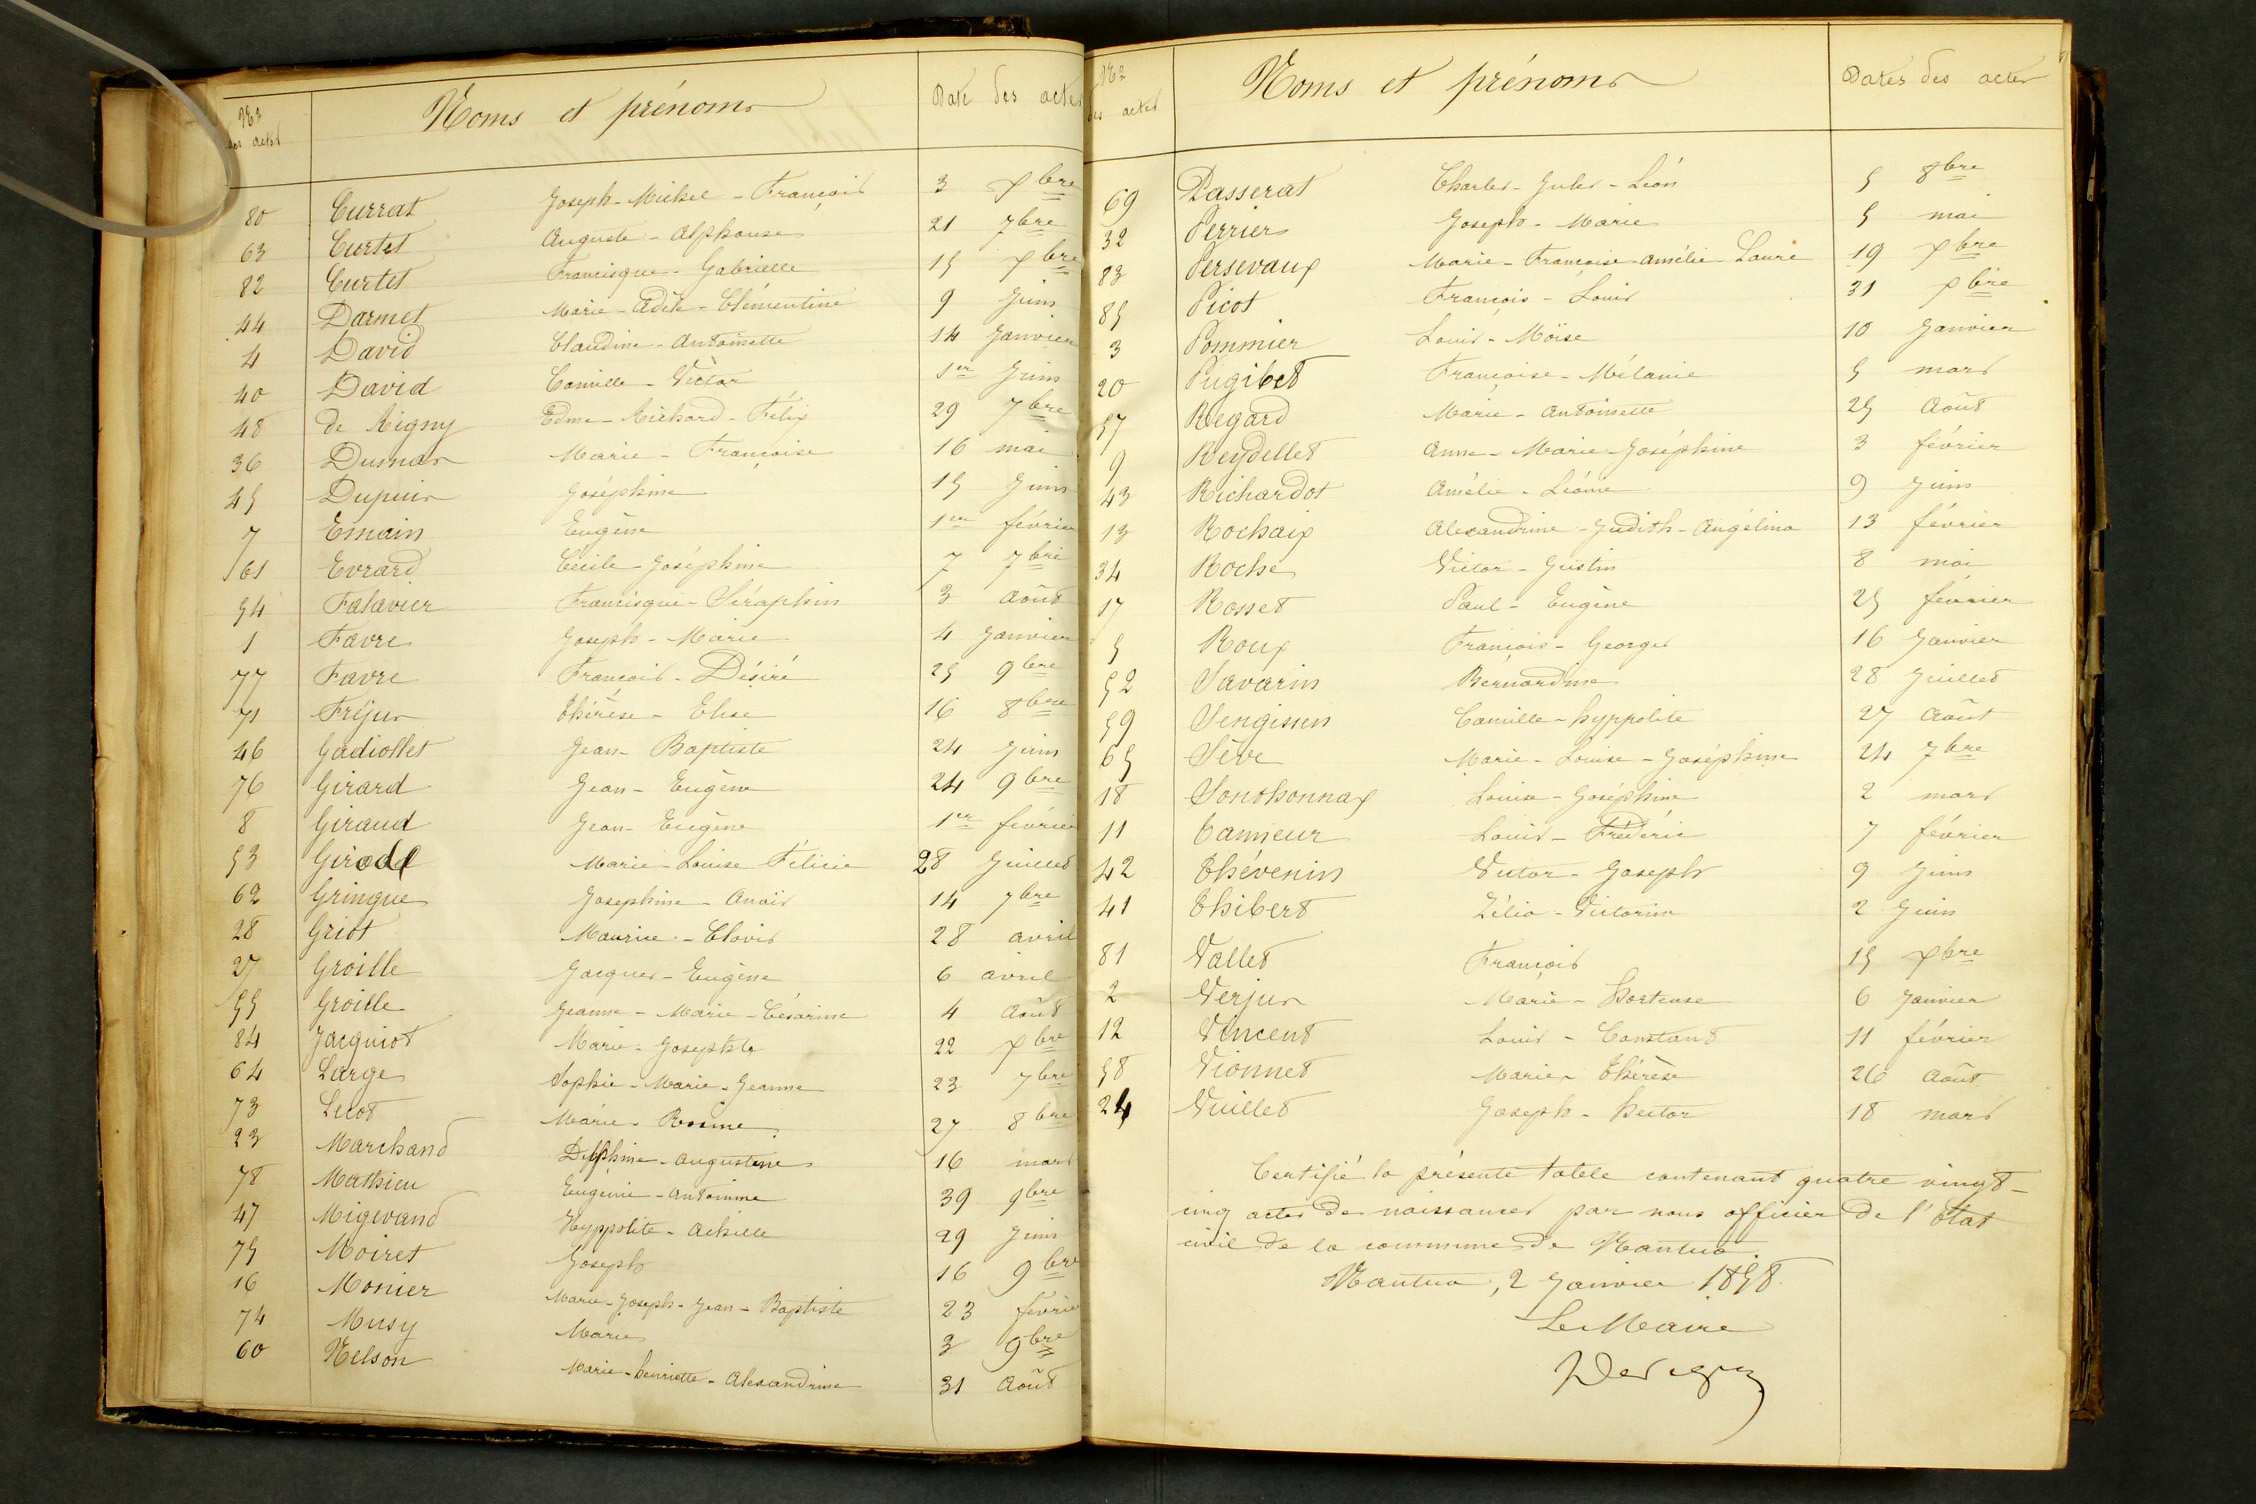 Nos des actes Noms et prénoms Date des actes
80 Currat Joseph-Michel-François 3 Xbre
63 Curtet Auguste-Alphonse 21 7bre
82 Curtet Francisque-Gabrielle 15 Xbre
44 Darmet Marie-Adèle-Clémentine 9 Juin
4 David Claudine-Antoinette 14 Janvier
40 David Camille-Victor 1er Juin
48 de Rigny Edme-Richard-Félix 29 7bre
36 Dumas Marie-Françoise 16 mai
45 Dupuis Joséphine 15 Juin
7 Emain Eugène 1er février
61 Evrard Cécile-Joséphine 7 7bre
54 Falavier Francisque-Séraphin 3 Août
1 Favre Joseph-Marie 4 Janvier
77 Favre François-Désiré 25 9bre
71 Fréjus Thérèse-Elise 16 8bre
46 Gadiollet Jean-Baptiste 24 Juin
76 Girard Jean-Eugène 24 9bre
8 Giraud Jean-Eugène 1er février
53 Girod Marie-Louise Félicie 28 Juillet
62 Gringue Josephine-Anaïs 14 7bre
28 Griot Maurice-Clovis 28 avril
27 Groille Jacques-Eugène 6 avril
55 Groille Jeanne-Marie-Césarine 4 Août
84 Jacquiot Marie-Josephte 22 Xbre
64 Large Sophie-Marie-Jeanne 23 7bre
73 Licot Marie-Rosine 27 8bre
23 Marchand Delphine-Augustine 16 mars
78 Mathieu Eugénie-Antoinine 39 9bre
47 Migevand Hyppolite-Achille 29 Juin
75 Moiret Joseph 16 9bre
16 Monier Marie-Joseph-Jean-Baptiste 23 février
74 Musy Marie 3 9bre
60 Nelson Marie-henriette-Alexandrine 31 Août
Nos des actes Noms et prénoms Dates des actes
69 Passerat Charles-Jules-Léon 5 8bre
32 Perrier Joseph-Marie 5 mai
83 Persevaux Marie-Françoise-Amélie-Laure 19 Xbre
85 Picot François-Louis 31 Xbre
3 Pommier Louis-Moïse 10 Janvier
20 Pugibet Françoise-Mélanie 5 mars
57 Regard Marie-Antoinette 25 Août
9 Reydellet Anne-Marie-Joséphine 3 février
43 Richardot Amélie-Léonie 9 Juin
13 Rochaix Alexandrine-Judith-Angélina 13 février
34 Roche Victor-Justin 8 mai
17 Rosset Paul-Eugène 25 février
5 Roux François-Georges 16 Janvier
52 Savarin Bernardine 28 Juillet
59 Sengissen Camille-hyppolite 27 Août
65 Sève Marie-Louise-Joséphine 24 7bre
18 Sonthonnax Louise-Joséphine 2 mars
11 Tamieur Louis-Fréderic 7 février
42 Thévenin Victor-Joseph 9 Juin
41 Thibert Zélia-Victorine 2 Juin
81 Vallet François 15 Xbre
2 Verjus Marie-hortense 6 Janvier
12 Vincent Louis-Constant 11 février
58 Vionnet Marie-Thérèse 26 Août
24 Vuillet Joseph-hector 18 mars
Certifié la présente table contenant quatre vingt-
cinq actes de naissances par nous officier de l'Etat
civil de la commune de Nantua.
Nantua, 2 Janvier 1858.
Le Maire